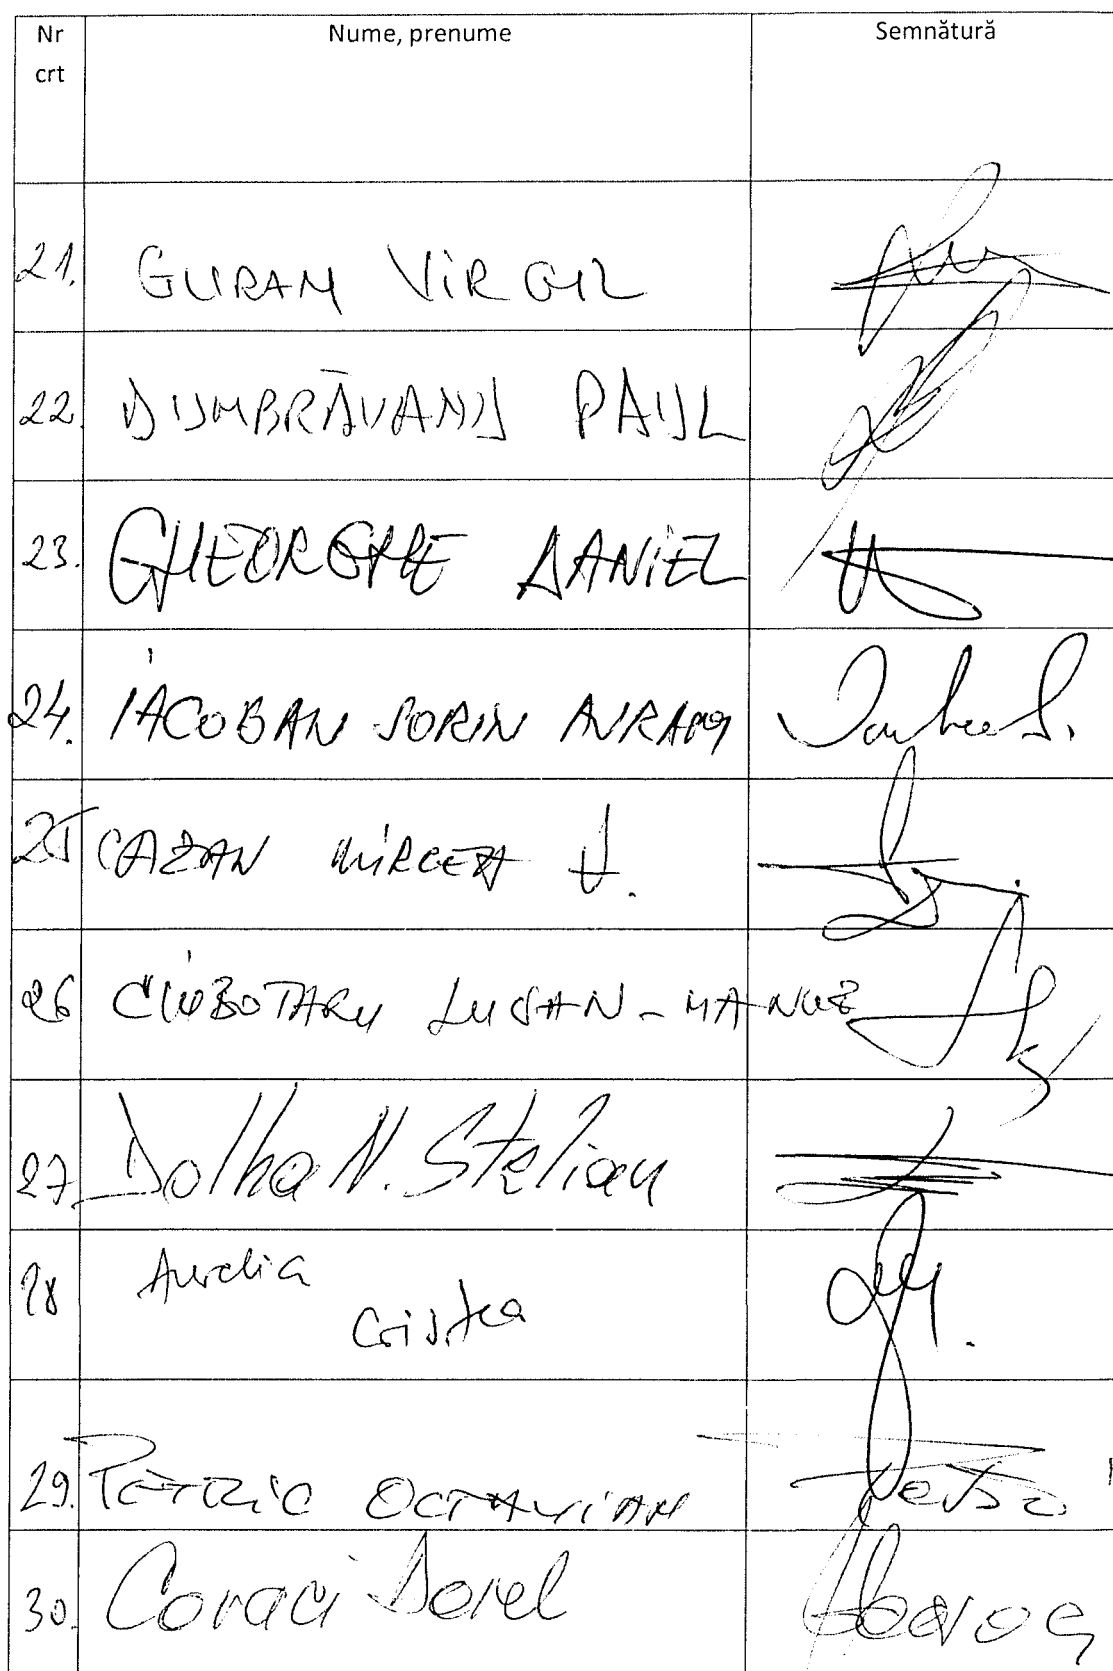 Nr Nume, prenume Semnătură
crt
21. GURAN VIRGIL
22. DUMBRĂVANU PAUL
23. GHEORGHE DANIEL
24. IACOBAN SORIN AVRAM
25 CAZAN MIRCEA V.
26 CIOBOTARU LUCIAN-MANUEL
27 Dolha N. Stelian
28 Aurelia
Cristea
29. PETRIC OCTAVIAN
30. Coraci Dorel